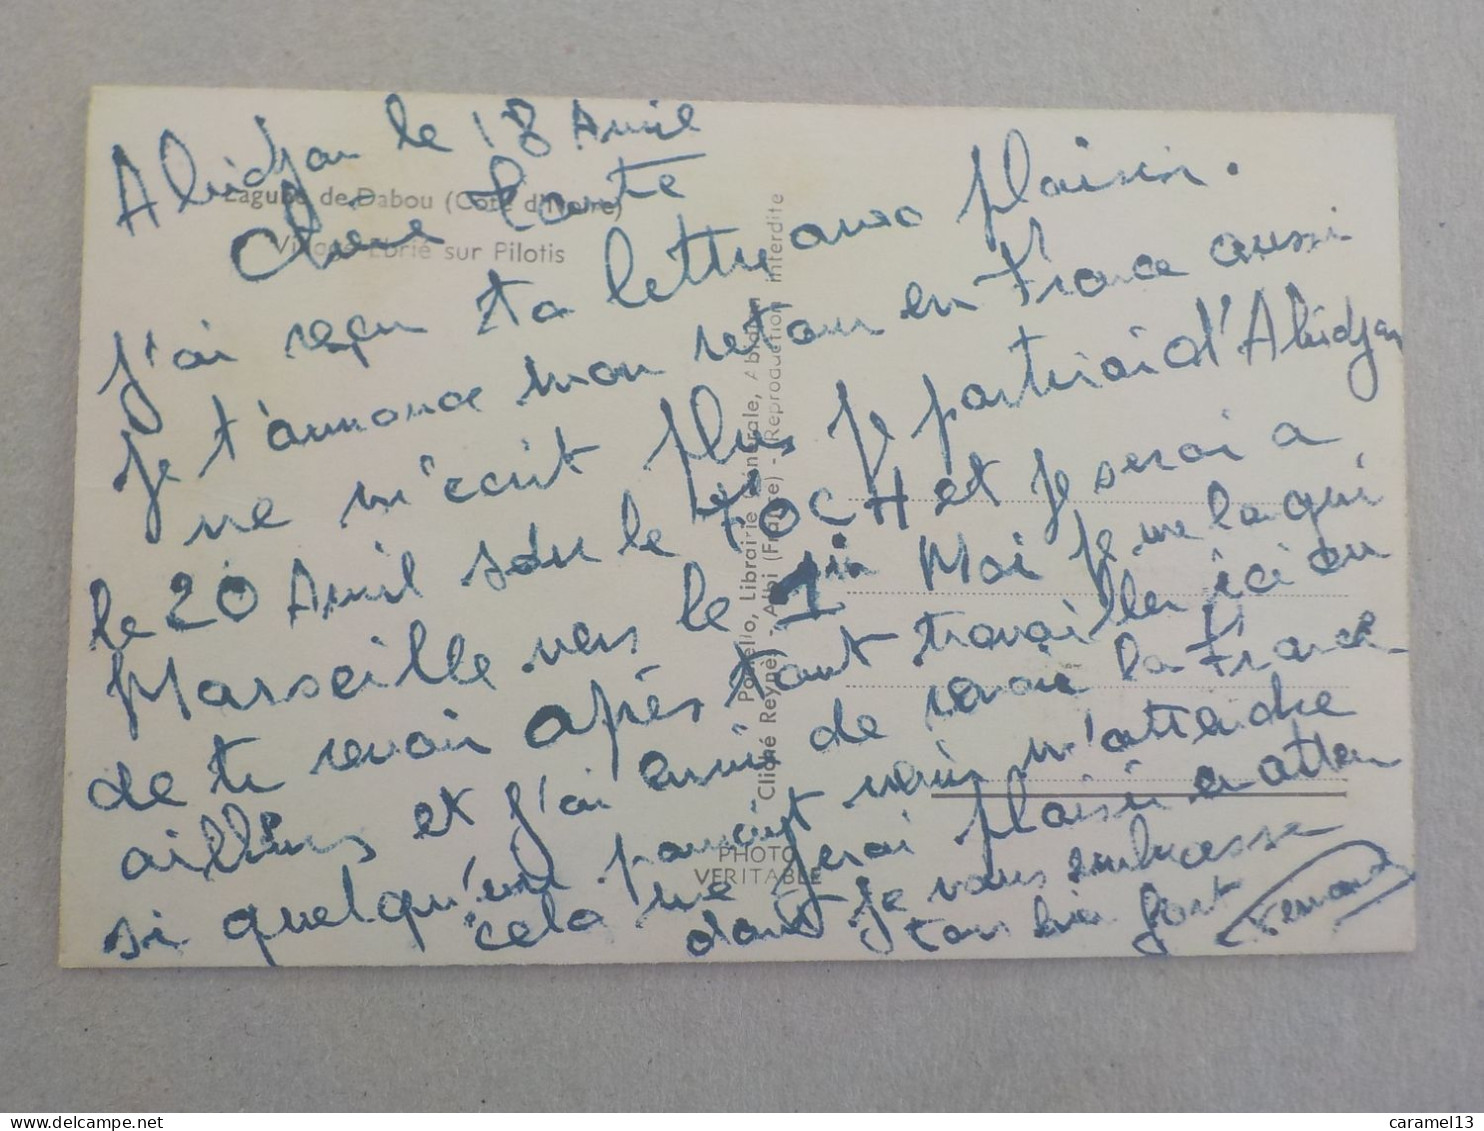 Abidjan le 18 Avril
Lagune de Dabou (Côte d'Ivoire)
Chère Tante
Village Ebrié sur Pilotis
J'ai reçu ta lettre avec plaisir.
Je t'annonce mon retour en France aussi
ne m'écrit plus Je partirai d'Abidjan
le 20 Avril sur le FOCH et je serai a
Marseille vers le 1er Mai Je me
de te revoir après tant travailler ici ou
ailleurs et J'ai envie de revoir la France
si quelqu'un pouvait venir m'attendre
cela me ferai plaisir en atten
dant Je vous embrasse
tous bien fort Fernand
Cliché Reynès - Albi (France) - (Reproduction interdite
Librairie Générale, Abidjan
PHOTO
VERITABLE
caramel13